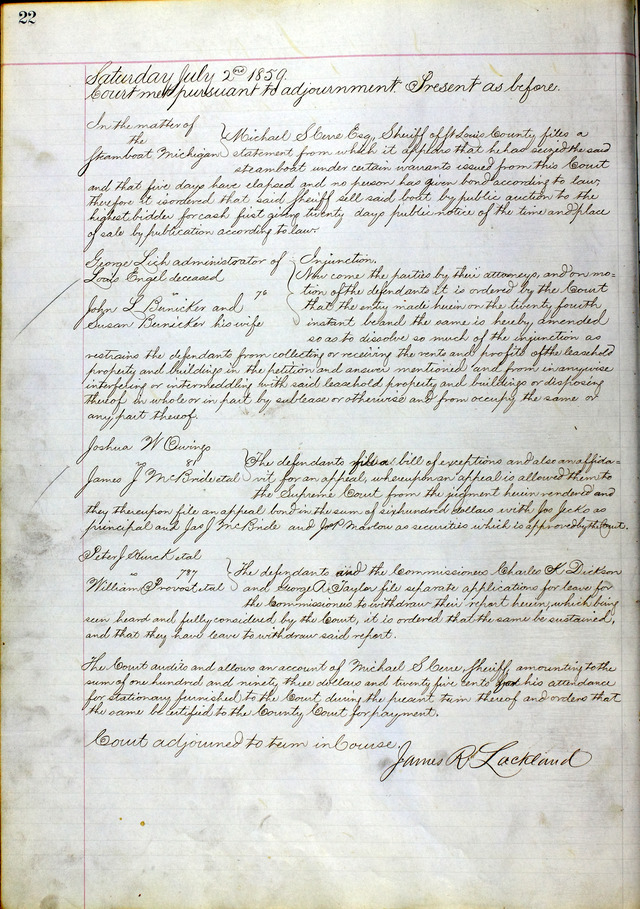 22
Saturday July 2nd 1859.
Court met pursuant to adjournment. Present as before.
In the matter of
the
Steamboat Michigan
Michael S Cerre Esq, Sheriff of St Louis County, files a
statement from which it appears that he has seized the said
steamboat under certain warrants issued from this Court
and that five days have elapsed and no person has given bond according to law;
therefore it is ordered that said Sheriff sell said boat by public auction to the
highest bidder for cash first giving twenty days public notice of the time and place
of sale by publication according to law.
George Lich administrator of
Louis Engel deceased
vs 76
John L Bunicker and
Susan Bunicker his wife
Injunction.
Now come the parties by their attorneys, and on mo-
tion of the defendants it is ordered by the Court
that the entry made herein on the twenty fourth
instant be and the same is hereby amended
so as to dissolve so much of the injunction as
restrains the defendants from collecting or receiving the rents and profits of the leasehold
property and buildings in the petition and answer mentioned and from in anywise
interfering or intermeddling with said leasehold property and buildings or disposing
thereof in whole or in part by sublease or otherwise and from occupy the same or
any part thereof.
Joshua W Owings
vs 81
James J McBride et al
The defendants file a bill of exceptions and also an affida-
vit for an appeal, whereupon an appeal is allowed them to
the Supreme Court from the judgment herein rendered and
they thereupon file an appeal bond in the sum of eight hundred dollars with Jos Jecko as
principal and Jas J McBride and Jos P Marlow as securities which is approved by the Court.
Peter J Hurck et al
vs 797
William Provost et al
The defendants and the Commissioners Charles K Dickson
and George R Taylor file separate applications for leave for
the Commissioners to withdraw their report herein; which being
seen heard and fully considered by the Court, it is ordered that the same be sustained,
and that they have leave to withdraw said report.
The Court audits and allows an account of Michael S Cerre, Sheriff, amounting to the
sum of one hundred and ninety three dollars and twenty five cents for his attendance
for stationary furnished to the Court during the present term thereof and orders that
the same be certified to the County Court for payment.
Court adjourned to term in Course.
James R Lackland